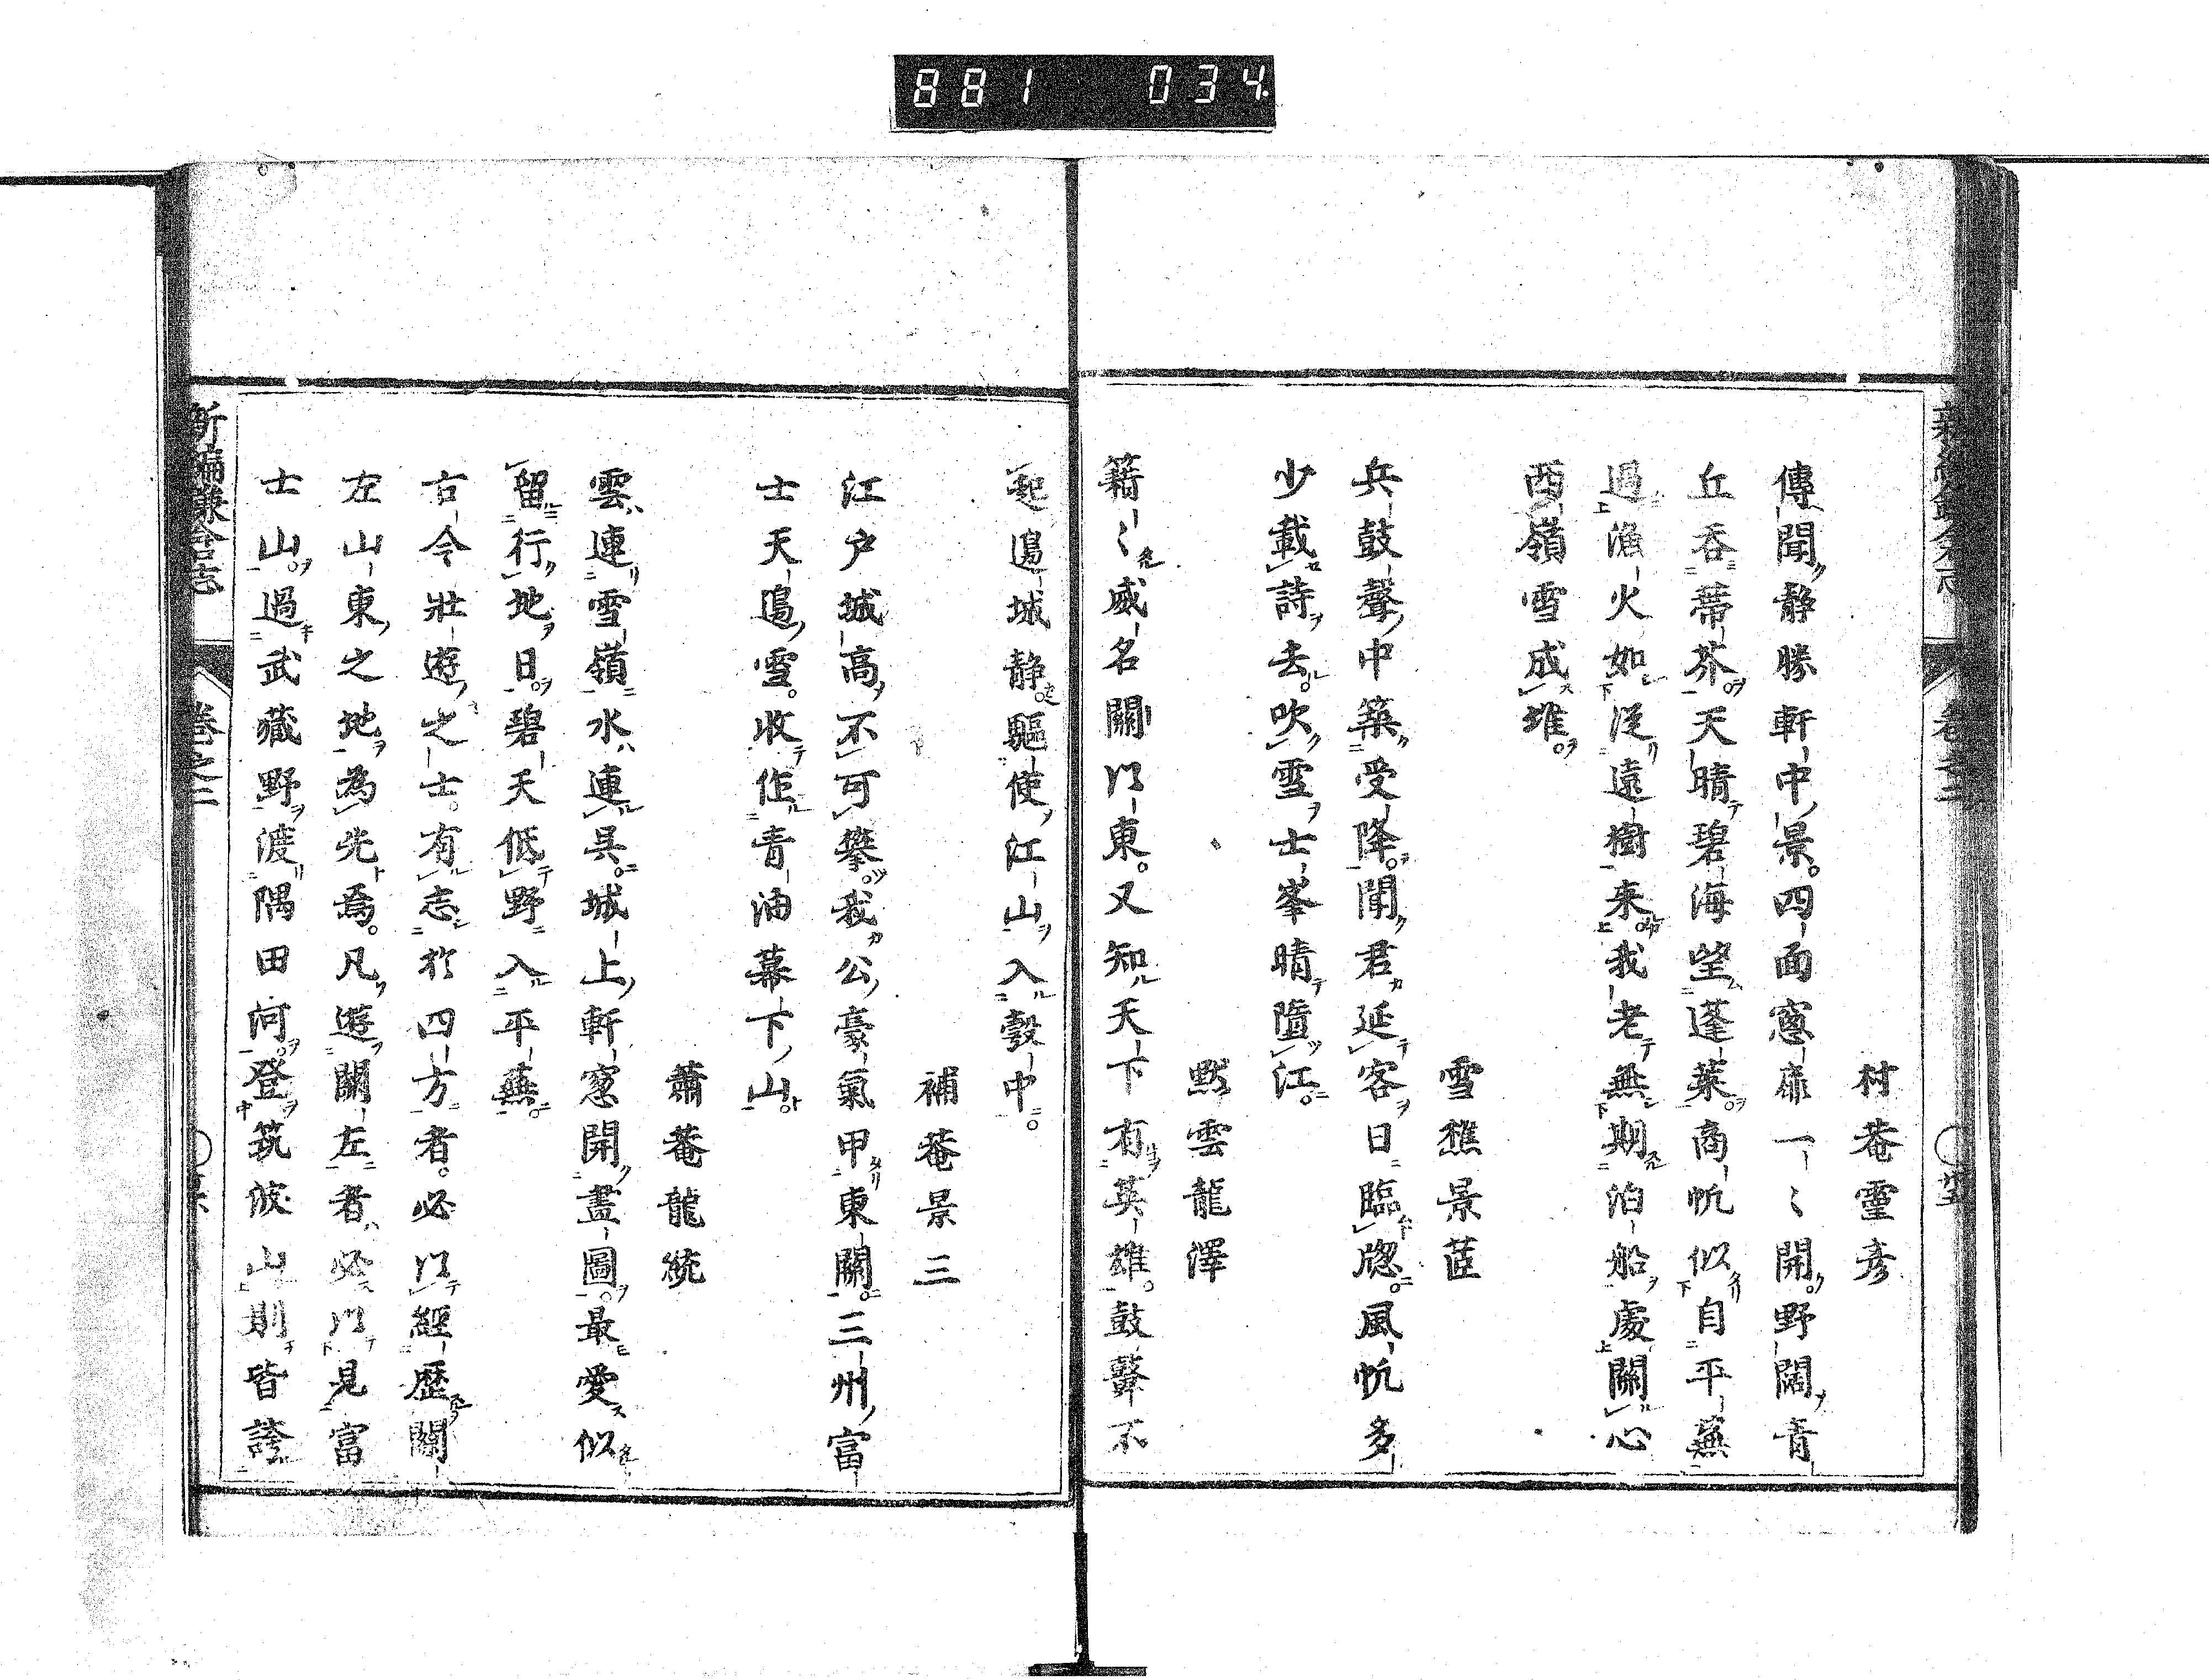 881 034
村菴靈彦
傳聞靜勝軒中景。四面窓扉一〻開。野闊青
丘呑蔕芥。天晴碧海望蓬萊。商帆似自平蕪
過。漁火如從遠樹来。我老無期泊船處。關心
西嶺雪成堆。
雪樵景茝
兵鼓聲中築受降。聞君延客日臨窓。風帆多
少載詩去。吹雪士峯晴墮江。
默雲龍澤
籍〻威名關以東。又知天下有英雄。鼓聲不
起邉城靜。驅使江山入彀中。
補菴景三
江户城高不可攀。我公豪氣甲東關。三州富
士天邉雪。收作青油幕下山。
蕭菴龍統
雲連雪嶺水連呉。城上軒窓開畫圖。最愛似
留行地日。碧天低野入平蕪。
古今壯遊之士。有志於四方者。必以經歴關
左山東之地為先焉。凡遊關左者。必以見富
士山。過武藏野。渡隅田河。登筑波山則皆誇
新編鎌倉志 卷之二